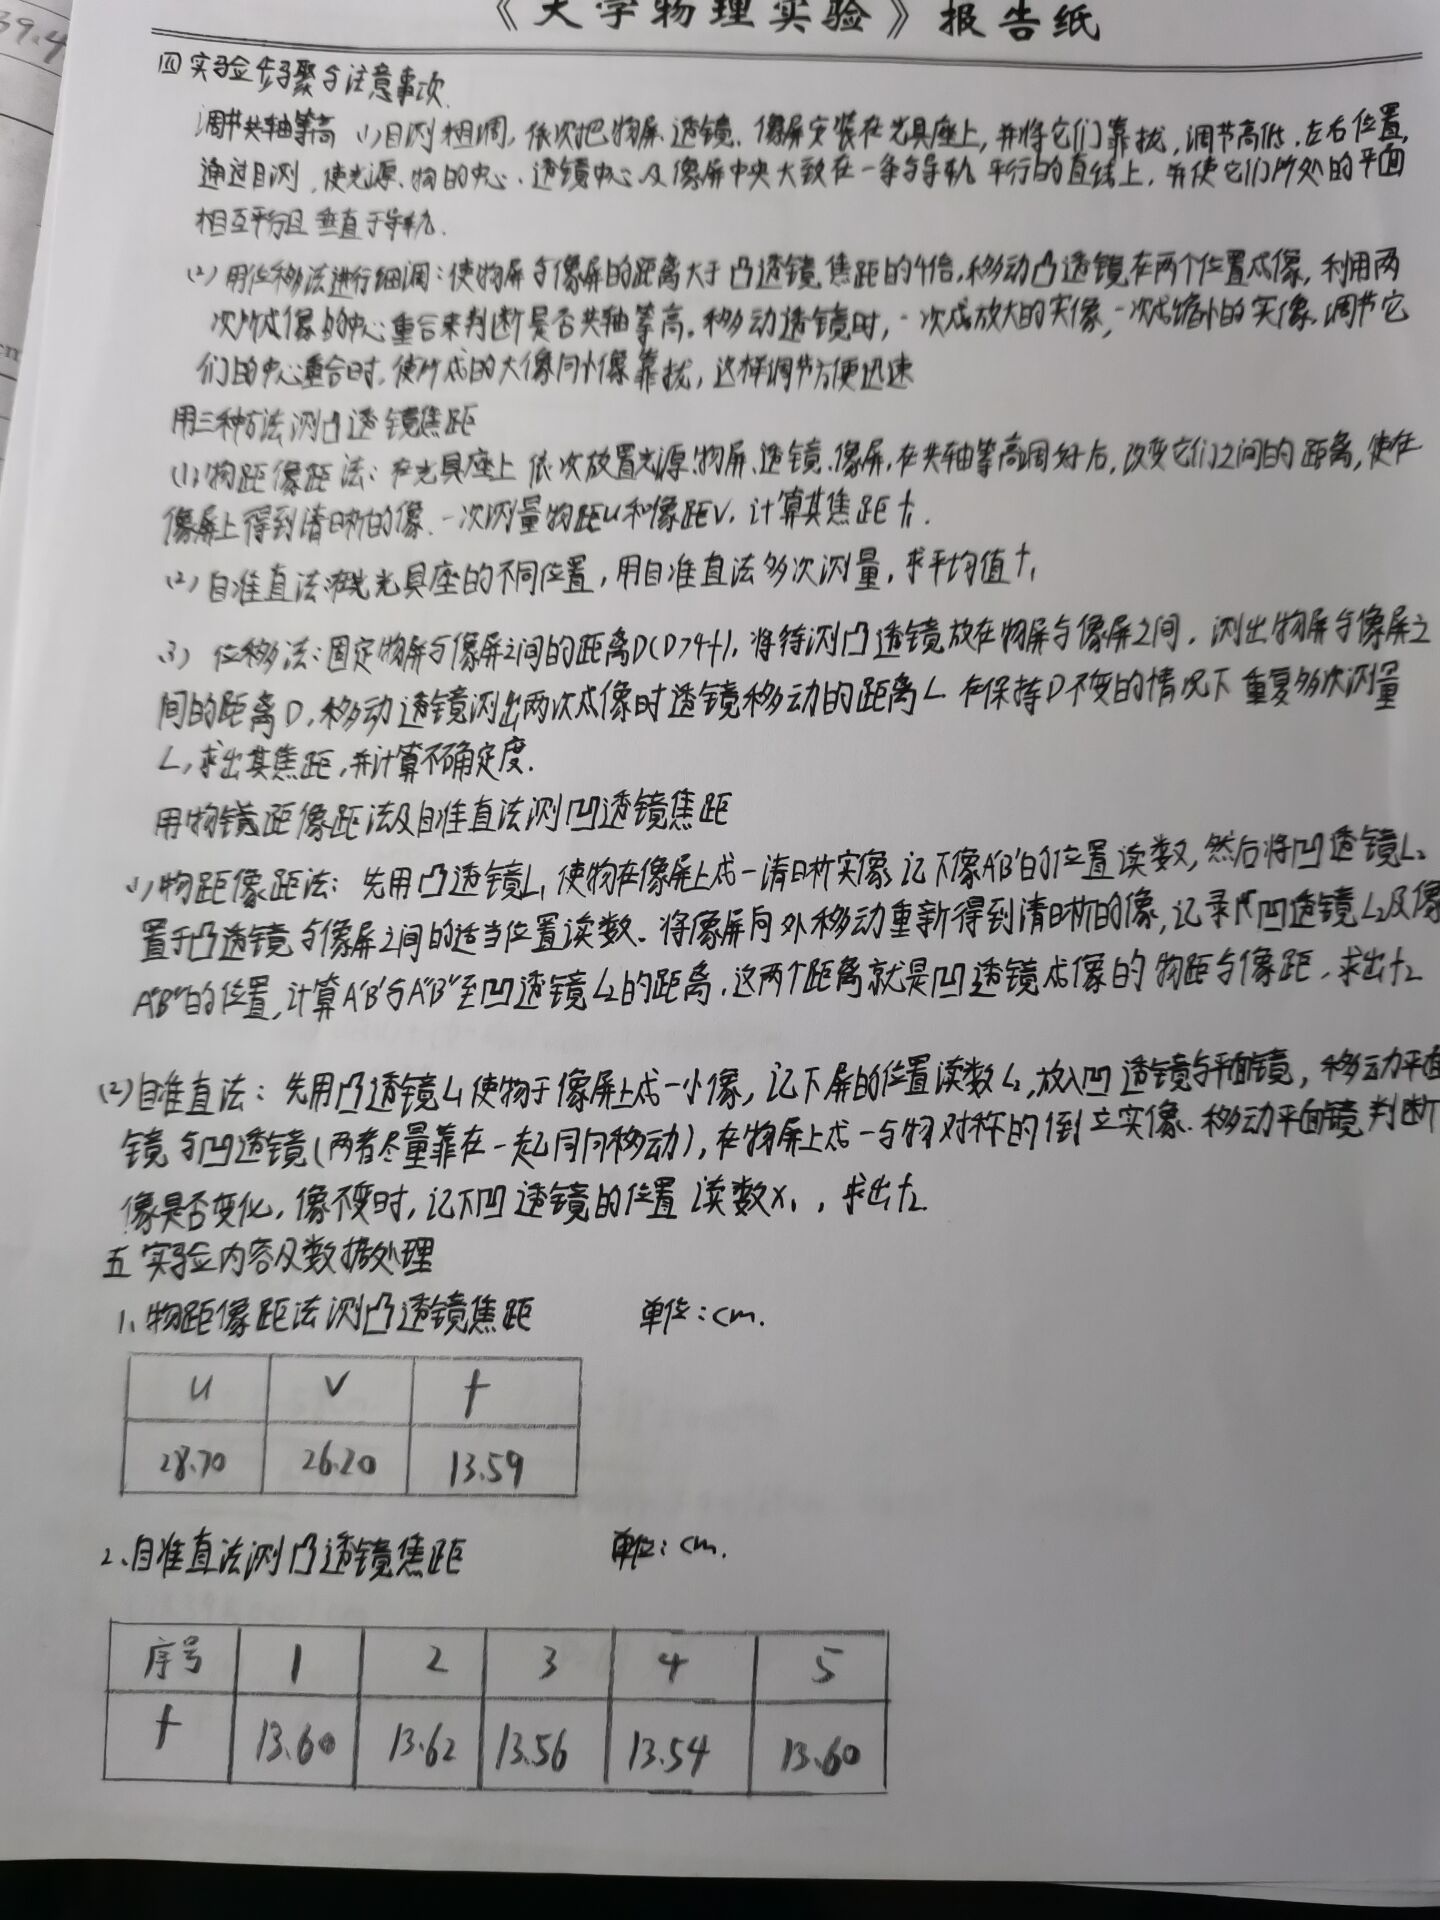 39.4
《大学物理实验》报告纸
四 实验步骤与注意事项.
调节共轴等高 (1)目测粗调,依次把物屏、透镜、像屏安装在光具座上,并将它们靠拢,调节高低、左右位置,
通过目测,使光源、物的中心、透镜中心及像屏中央大致在一条与导轨平行的直线上,并使它们所处的平面
相互平行且垂直于导轨.
(2)用位移法进行细调:使物屏与像屏的距离大于凸透镜焦距的4倍,移动凸透镜在两个位置成像,利用两
次所成像的中心重合来判断是否共轴等高.移动透镜时,一次成放大的实像,一次成缩小的实像.调节它
们的中心重合时,使所成的大像向小像靠拢,这样调节方便迅速
用三种方法测凸透镜焦距
(1)物距像距法:在光具座上依次放置光源、物屏、透镜、像屏,在共轴等高调好后,改变它们之间的距离,使在
像屏上得到清晰的像.一次测量物距u和像距v.计算其焦距f.
(2)自准直法:在光具座的不同位置,用自准直法多次测量,求平均值f,
(3) 位移法:固定物屏与像屏之间的距离D(D>4f),将待测凸透镜放在物屏与像屏之间.测出物屏与像屏之
间的距离D,移动透镜测出两次成像时透镜移动的距离L 在保持D不变的情况下重复多次测量
L,求出其焦距,并计算不确定度.
用物距像距法及自准直法测凹透镜焦距
(1)物距像距法:先用凸透镜L₁使物在像屏上成一清晰实像,记下像A'B'的位置读数,然后将凹透镜L₂
置于凸透镜与像屏之间的适当位置读数.将像屏向外移动重新得到清晰的像,记录下凹透镜L₂及像
A"B"的位置,计算A'B'与A"B"至凹透镜L₂的距离.这两个距离就是凹透镜成像的物距与像距.求出f₂
(2)自准直法:先用凸透镜L₁使物于像屏上成一小像,记下屏的位置读数L₂,放入凹透镜与平面镜,移动平面
镜与凹透镜(两者尽量靠在一起同向移动),在物屏上成一与物对称的倒立实像.移动平面镜判断
像是否变化,像不变时,记下凹透镜的位置读数x₁,求出f₂
五 实验内容及数据处理
1、物距像距法测凸透镜焦距 单位:cm.
u v f
28.70 26.20 13.59
2、自准直法测凸透镜焦距 单位:cm.
序号 1 2 3 4 5
f 13.60 13.62 13.56 13.54 13.60